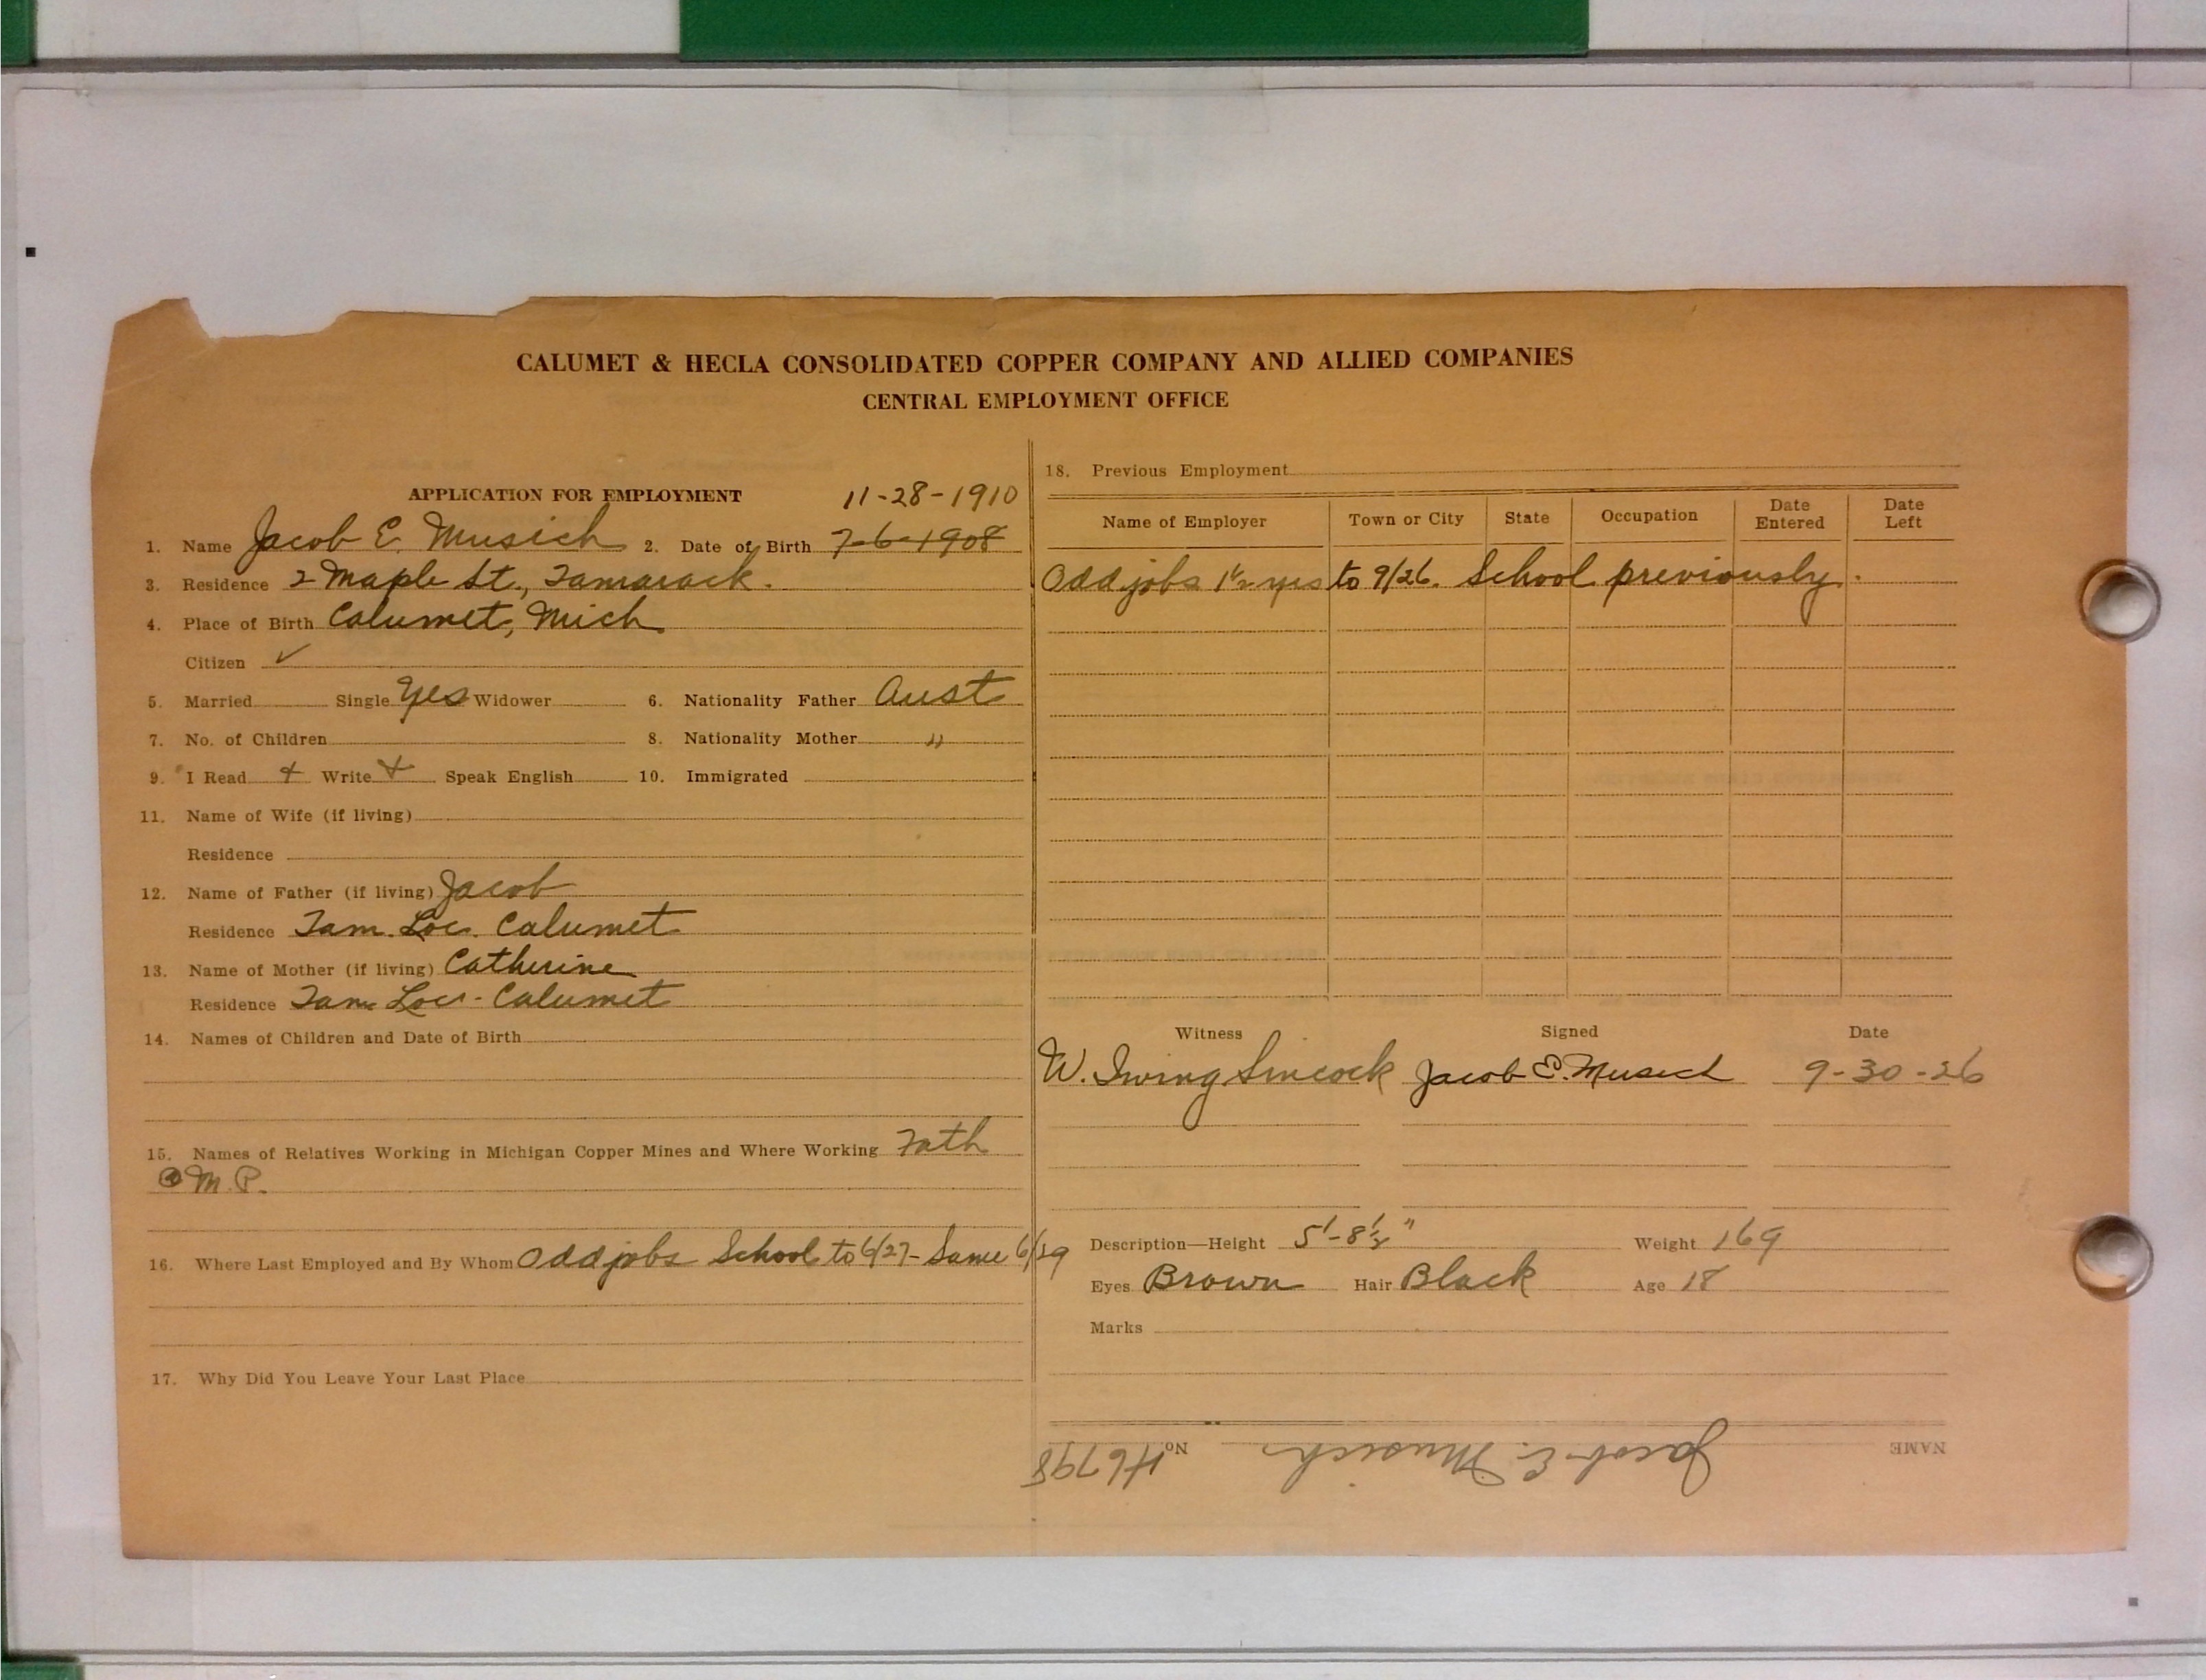 CALUMET & HECLA CONSOLIDATED COPPER COMPANY AND ALLIED COMPANIES
CENTRAL EMPLOYMENT OFFICE
APPLICATION FOR EMPLOYMENT 11-28-1910
1. Name Jacob E. Musich 2. Date of Birth 7-6-1908
3. Residence 2 Maple St., Tamarack.
4. Place of Birth Calumet, Mich
Citizen ✓
5. Married Single Yes Widower 6. Nationality Father Aust
7. No. of Children 8. Nationality Mother "
9. I Read + Write + Speak English 10. Immigrated
11. Name of Wife (if living)
Residence
12. Name of Father (if living) Jacob
Residence Tam. Loc. Calumet
13. Name of Mother (if living) Catherine
Residence Tam Loc - Calumet
14. Names of Children and Date of Birth
15. Names of Relatives Working in Michigan Copper Mines and Where Working Fath
M. P.
16. Where Last Employed and By Whom Odd jobs School to 6/27 - Same 6/29
17. Why Did You Leave Your Last Place
18. Previous Employment
Name of Employer Town or City State Occupation Date Entered Date Left
Odd jobs 1½ yrs to 9/26. School previously.
Witness Signed Date
W. Irving Sincock Jacob E. Musich 9-30-26
Description—Height 5'-8½" Weight 169
Eyes Brown Hair Black Age 18
Marks
NAME Jacob E. Musich No H6798